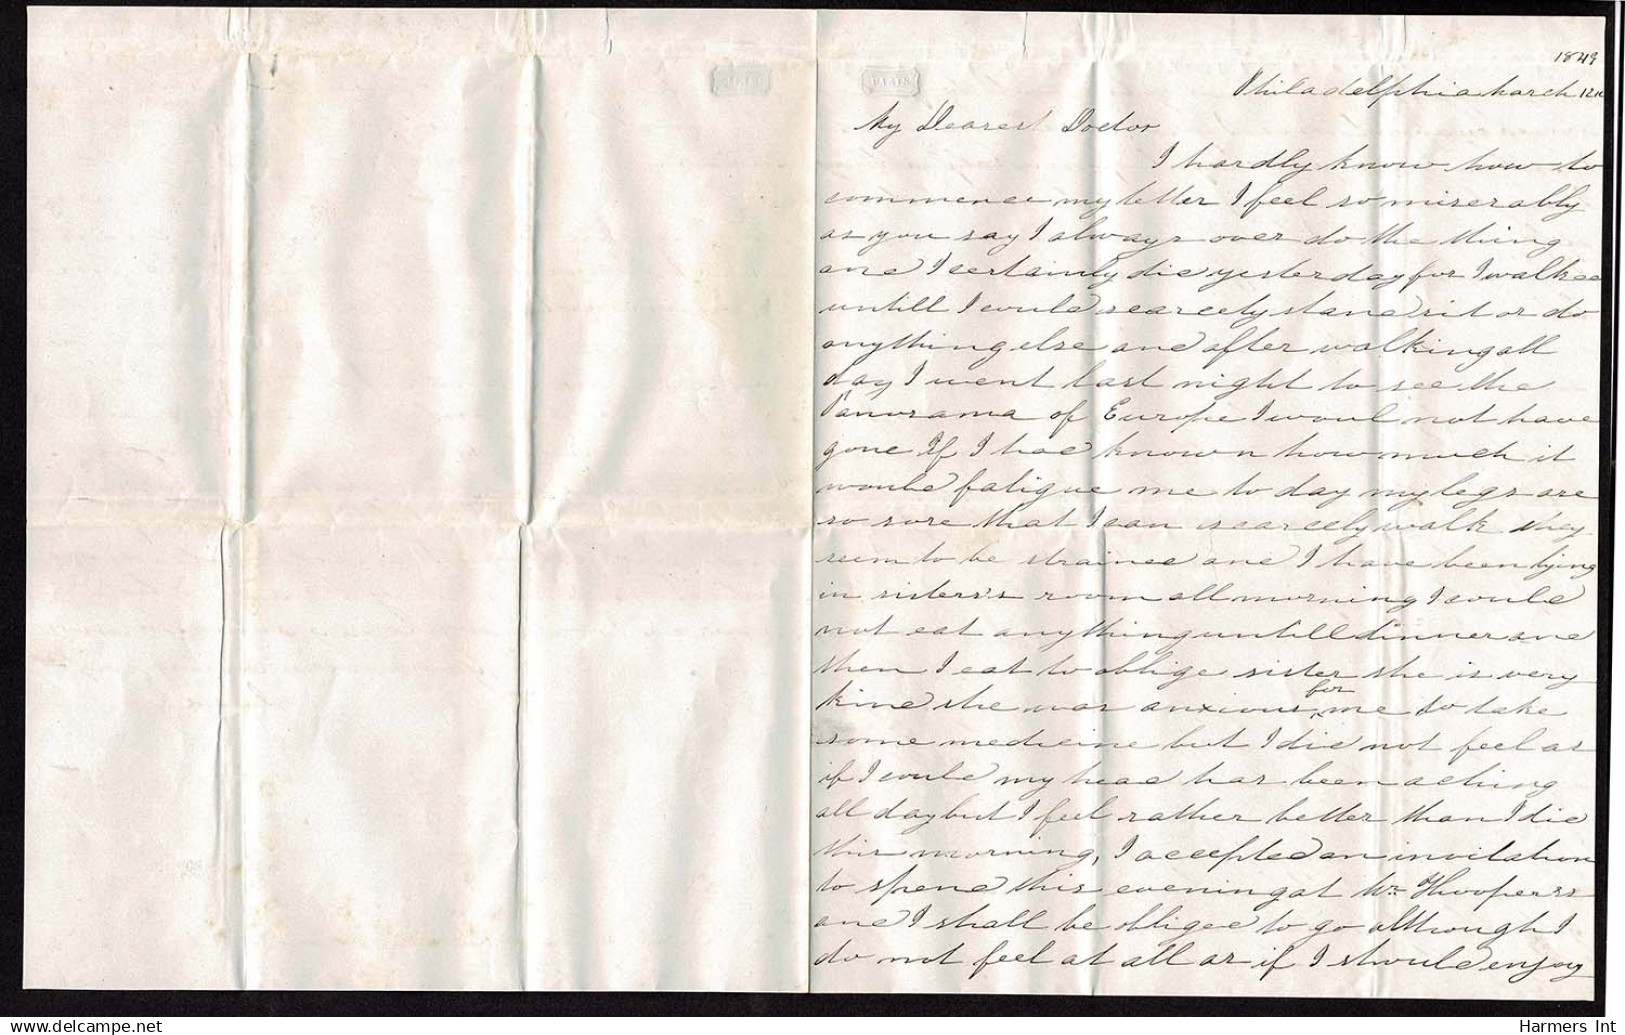 PARIS
1849
Philadelphia March 12
My Dearest Doctor
I hardly know how to
commence my letter I feel so miserably
as you say I always over do the thing
and I certainly did yesterday for I walked
untill I could scarcely stand sit or do
anything else and after walking all
day I went last night to see the
Panorama of Europe I woul not have
gone If I had known how much it
would fatigue me to day my legs are
so sore that I can scarcely walk they
seem to be strained and I have been lying
in sisters's room all morning I could
not eat anything untill dinner and
then I eat to oblige sister she is very
kind she was anxious for me to take
some medicine but I did not feel as
if I could my head has been aching
all day but I feel rather better than I did
this morning, I accepted an invitation
to spend this evening at Hooperss
and I shall be obliged to go although I
do not feel at all as if I should enjoy
Harmers Int